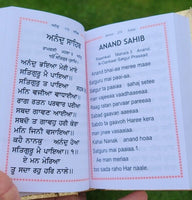 ਅਨੰਦੁ ਸਾਹਿਬ
ਅਨੰਦੁ ਭਇਆ ਮੇਰੀ ਮਾਏ
ਸਤਿਗੁਰੂ ਮੈ ਪਾਇਆ॥
ਸਤਿਗੁਰੁ ਤ ਪਾਇਆ ਸਹਜ ਸੇਤੀ
ਮਨਿ ਵਜੀਆ ਵਾਧਾਈਆ॥
ਰਾਗ ਰਤਨ ਪਰਵਾਰ ਪਰੀਆ
ਸਬਦ ਗਾਵਣ ਆਈਆ॥
ਸਬਦੋ ਤ ਗਾਵਹੁ ਹਰੀ ਕੇਰਾ
ਮਨਿ ਜਿਨੀ ਵਸਾਇਆ॥
ਕਹੈ ਨਾਨਕੁ ਅਨੰਦੁ ਹੋਆ
ਸਤਿਗੁਰੂ ਮੈ ਪਾਇਆ॥
ਏ ਮਨ ਮੇਰਿਆ
ਤੂ ਸਦਾ ਰਹੁ ਹਰਿ ਨਾਲੇ॥
ANAND SAHIB
Mahara 3 Anand
Satgur Prasaad
Anand bhai-aa meree maae
Satguroo mai paa-i-aa.
Satgur ta paa-i-aa sahaj
saytee
man vajee-aa
Raag ratan parvaar
paree-aa
sabad gaavan aa-ee-aa.
Sabdo ta gaavoh Haree kera
man jinee
Kahai Nanak anand hoaa
Satguroo mai paa-i-aa. 1.
Ae man meriaa
too sadaa rahu har naale.